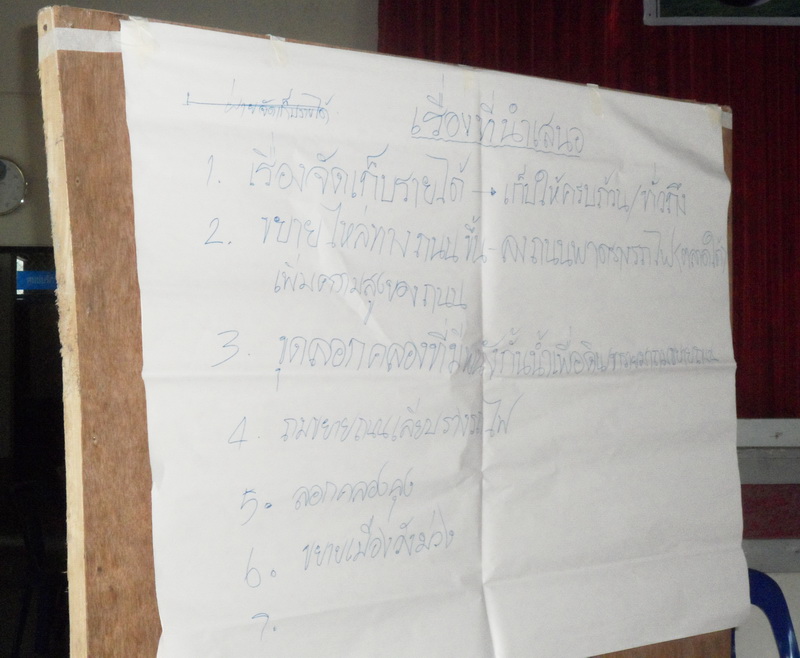 ฝ่ายจัดเก็บรายได้
เรื่องที่นำเสนอ
1. เรื่องจัดเก็บรายได้ → เก็บให้ครบถ้วน/ทั่วถึง
2. ขยายไหล่ทางถนน ขึ้น-ลงถนนพาดรางรถไฟ
เพิ่มความสูงของถนน
3. ขุดลอกคลองที่มี กั้นน้ำเพื่อ
4. ถมขยายถนนเลียบรางรถไฟ
5. ลอกคลองลุง
6. ขยายเมืองวังม่วง
7.